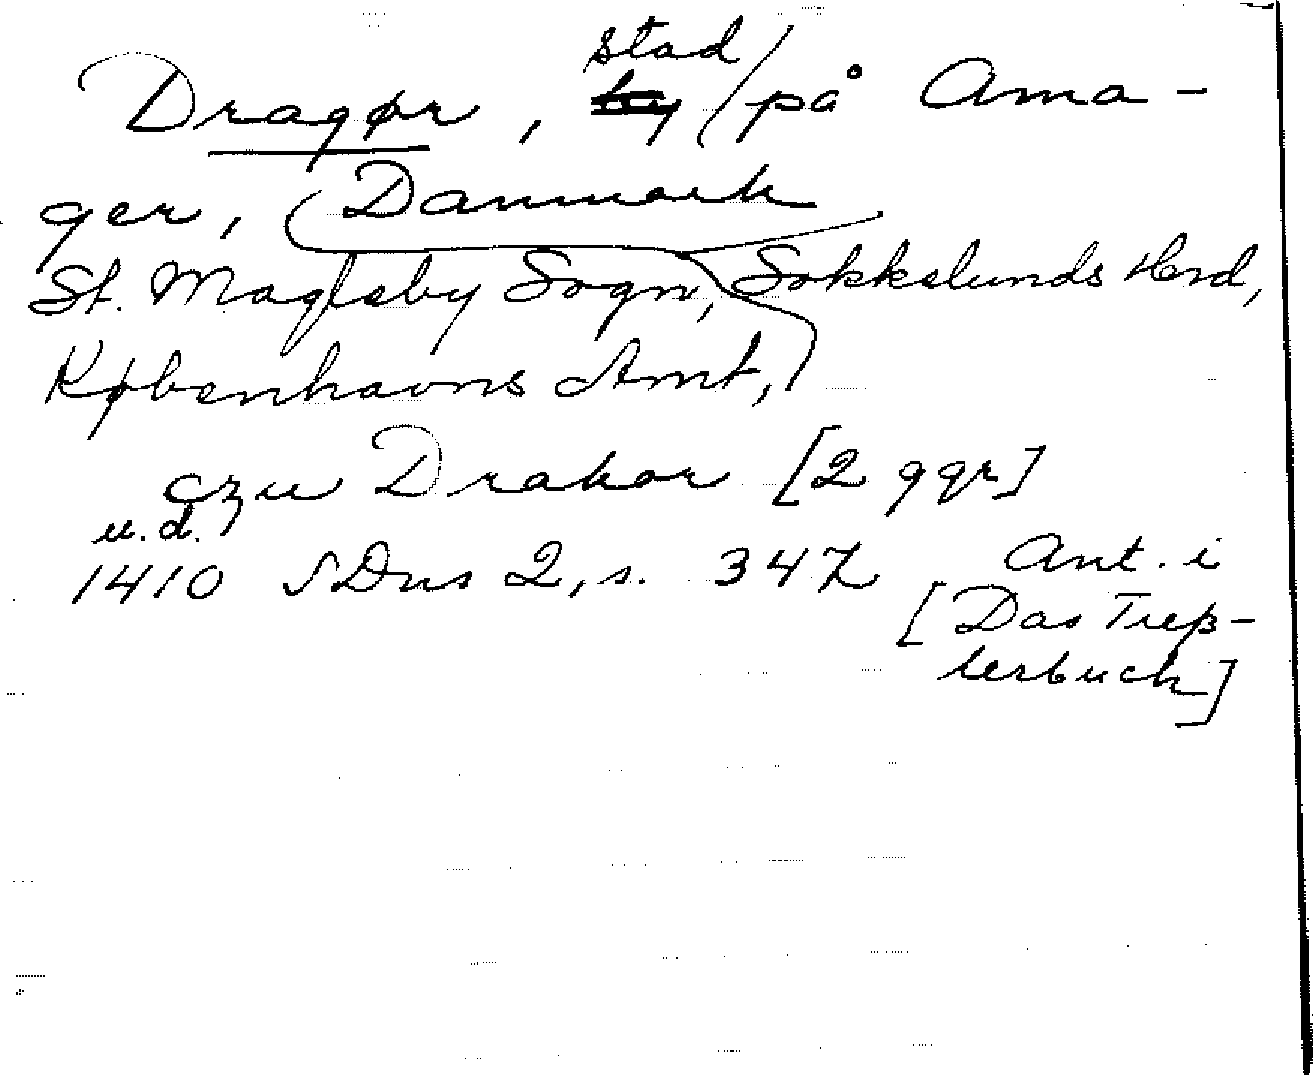 stad
Dragør, by / på Ama-
ger, Danmark
St. Magleby Sogn, Sokkelunds Herd,
Københavns Amt,
czu Drakor [2 ggr]
u.d.
1410 SDns 2, s. 347 Ant. i
[Das Treß-
lerbuch]